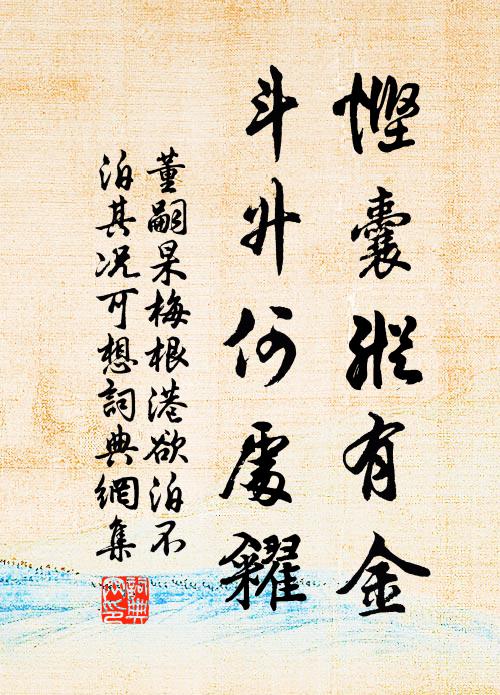 慳囊縱有金
斗升何處糴
董嗣杲梅根港欲泊不
泊其况可想詞典網集